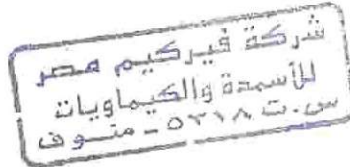 شركة فيركيم مصر
للأسمدة والكيماويات
س.ت ٥٢١٨ - منوف